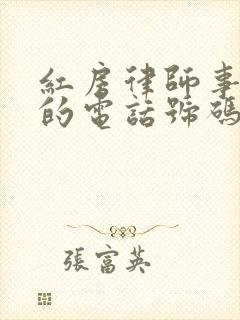 紅房律師事
的電話號碼
張富英